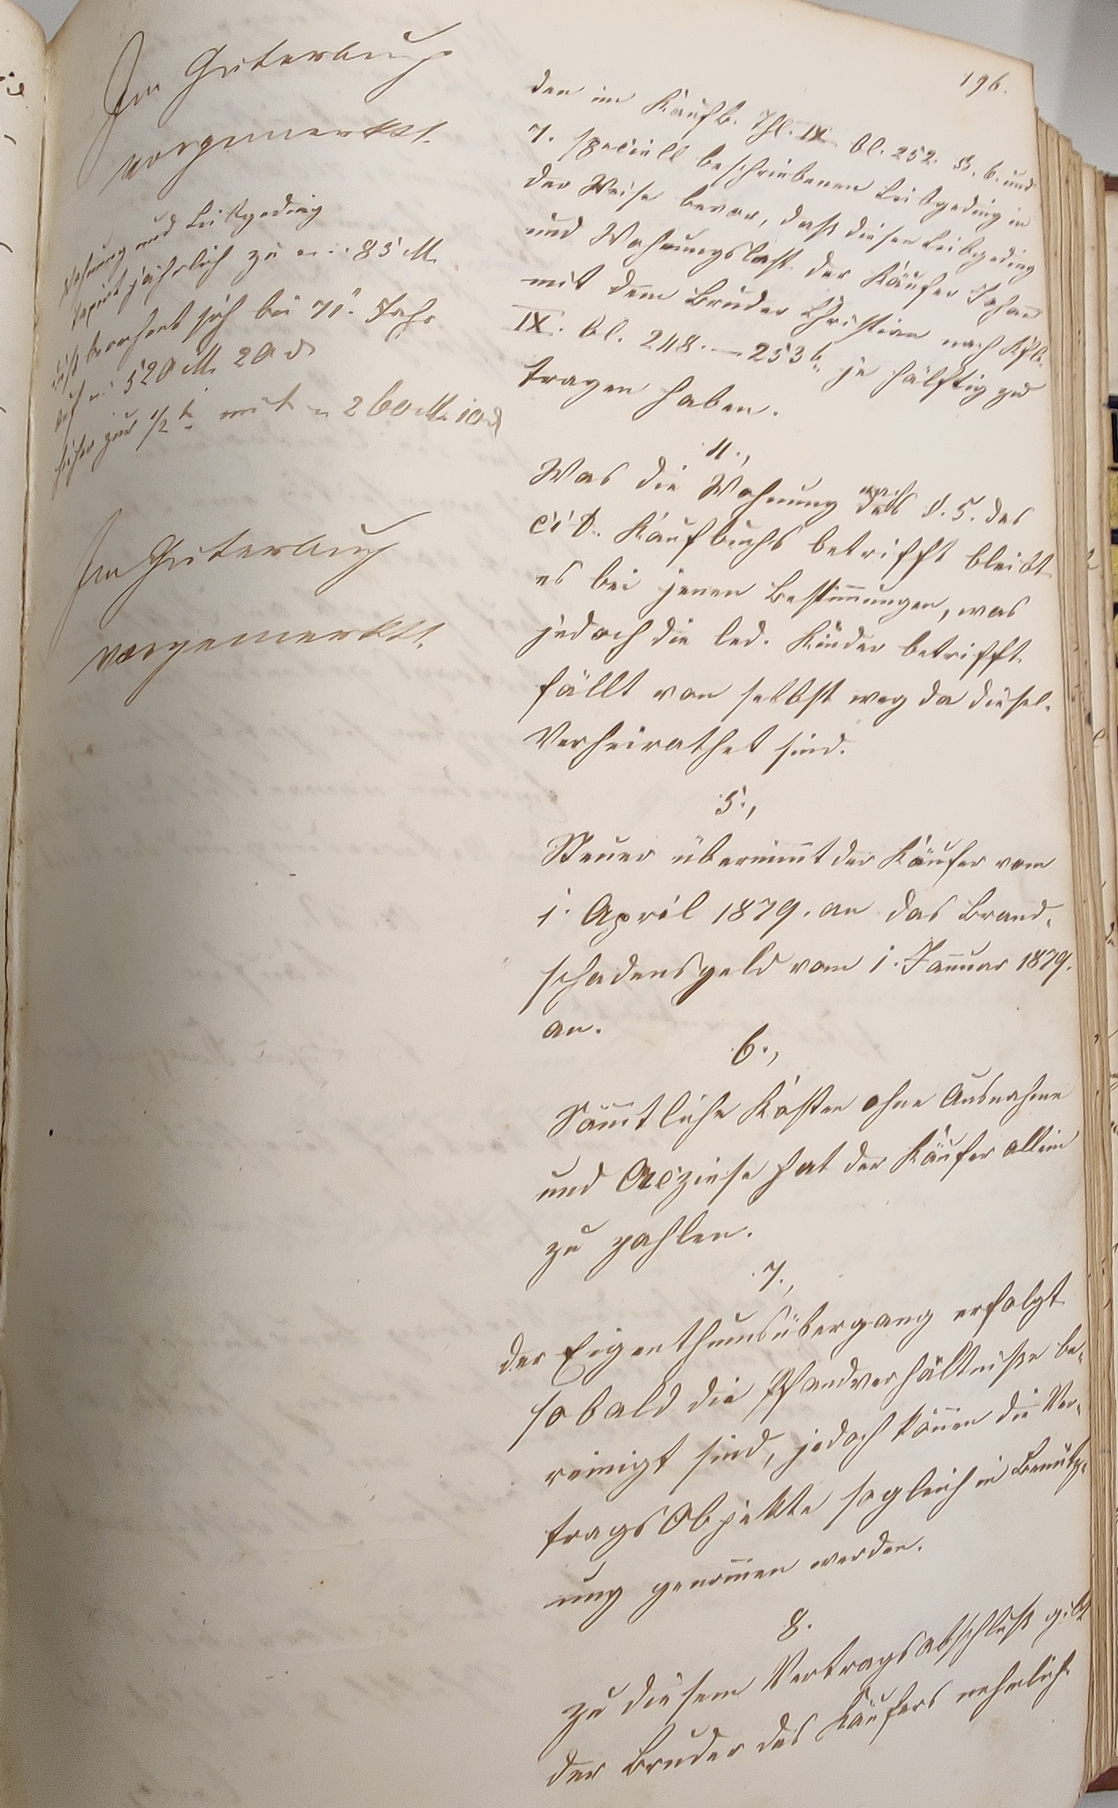 196.
Im Güterbuch
vorgemerkt.
Wohnung und Leibgeding
taxirt jährlich zu 85 M.
dieß berechnet sich bei 71. Jahr
auf 520 M. 20 d
hieher zur 1/2 t. mit 260 M. 10 d
Im Güterbuch
vorgemerkt.
den im Kaufb. Thl. IX. Bl. 252. §. 6. und
7. speciell beschriebenen Leibgeding in
der Weise bevor, daß dieses Leibgeding
und Wohnungslast der Käufer Johann
mit dem Bruder Christian nach Kfb.
IX. Bl. 248. — 253 b. je hälftig zu
tragen haben.
4.,
Was die Wohnung nach des §. 5. des
cit. Kaufbuchs betrifft bleibt
es bei jenen Bestimmungen, was
jedoch die led. Kinder betrifft
fällt von selbst weg da diesel.
Verheirathet sind.
5.,
Steuer übernimmt der Käufer vom
1. April 1879. an das Brand-
schadensgeld vom 1. Januar 1879.
an.
6.,
Sämtliche Kosten ohne Ausnahme
und Acziese hat der Käufer allein
zu zahlen.
7.,
der Eigenthumsübergang erfolgt
sobald die Pfandverhältniße be-
reinigt sind, jedoch können die Ver-
tragsObjekte sogleich in Benütz-
ung genommen werden.
8.
zu diesem Vertragsabschluß gibt
der Bruder des Käufers nehmlich